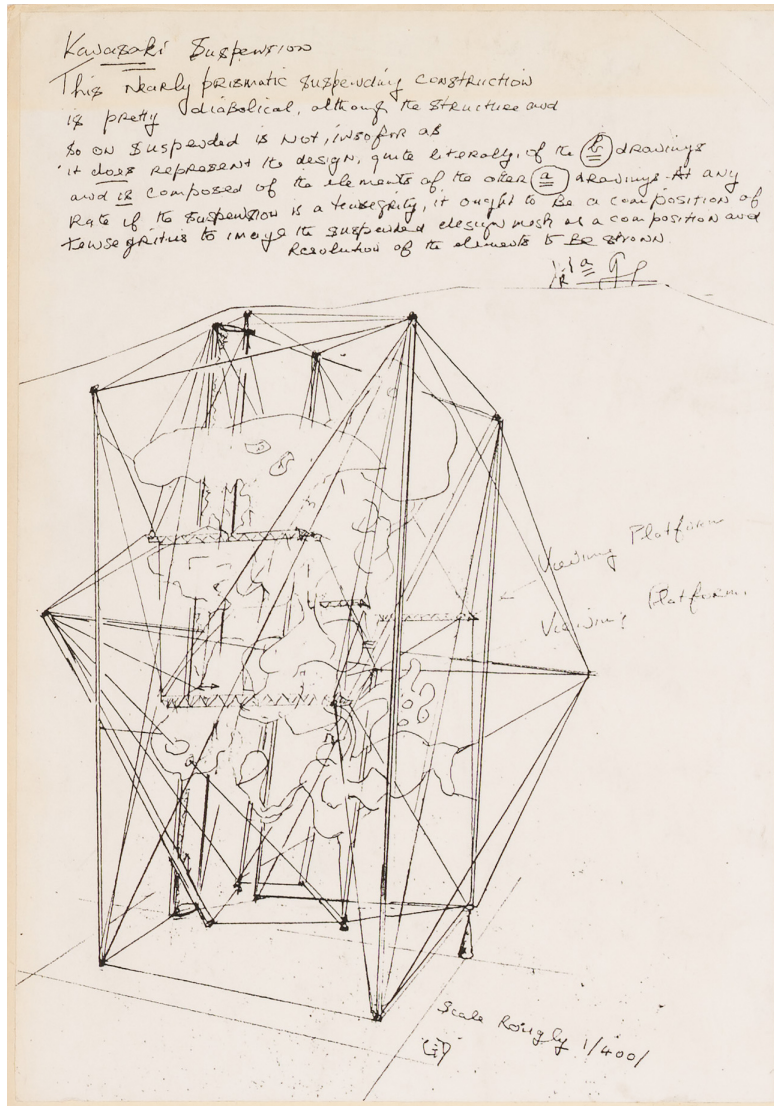 Kawasaki Suspension
This Nearly prismatic suspending construction
is pretty diabolical, although the structure and
so on suspended is not, insofar as
it does represent the design, quite literally, of the b drawings
and is composed of the elements of the other a drawings. At any
Rate if the suspension is a tensegrity, it ought to be a composition of
tensegrities to image the suspended design mesh as a composition and
Resolution of the elements to be strong.
Viewing Platform
Viewing Platform.
Scale Rougly 1/400/